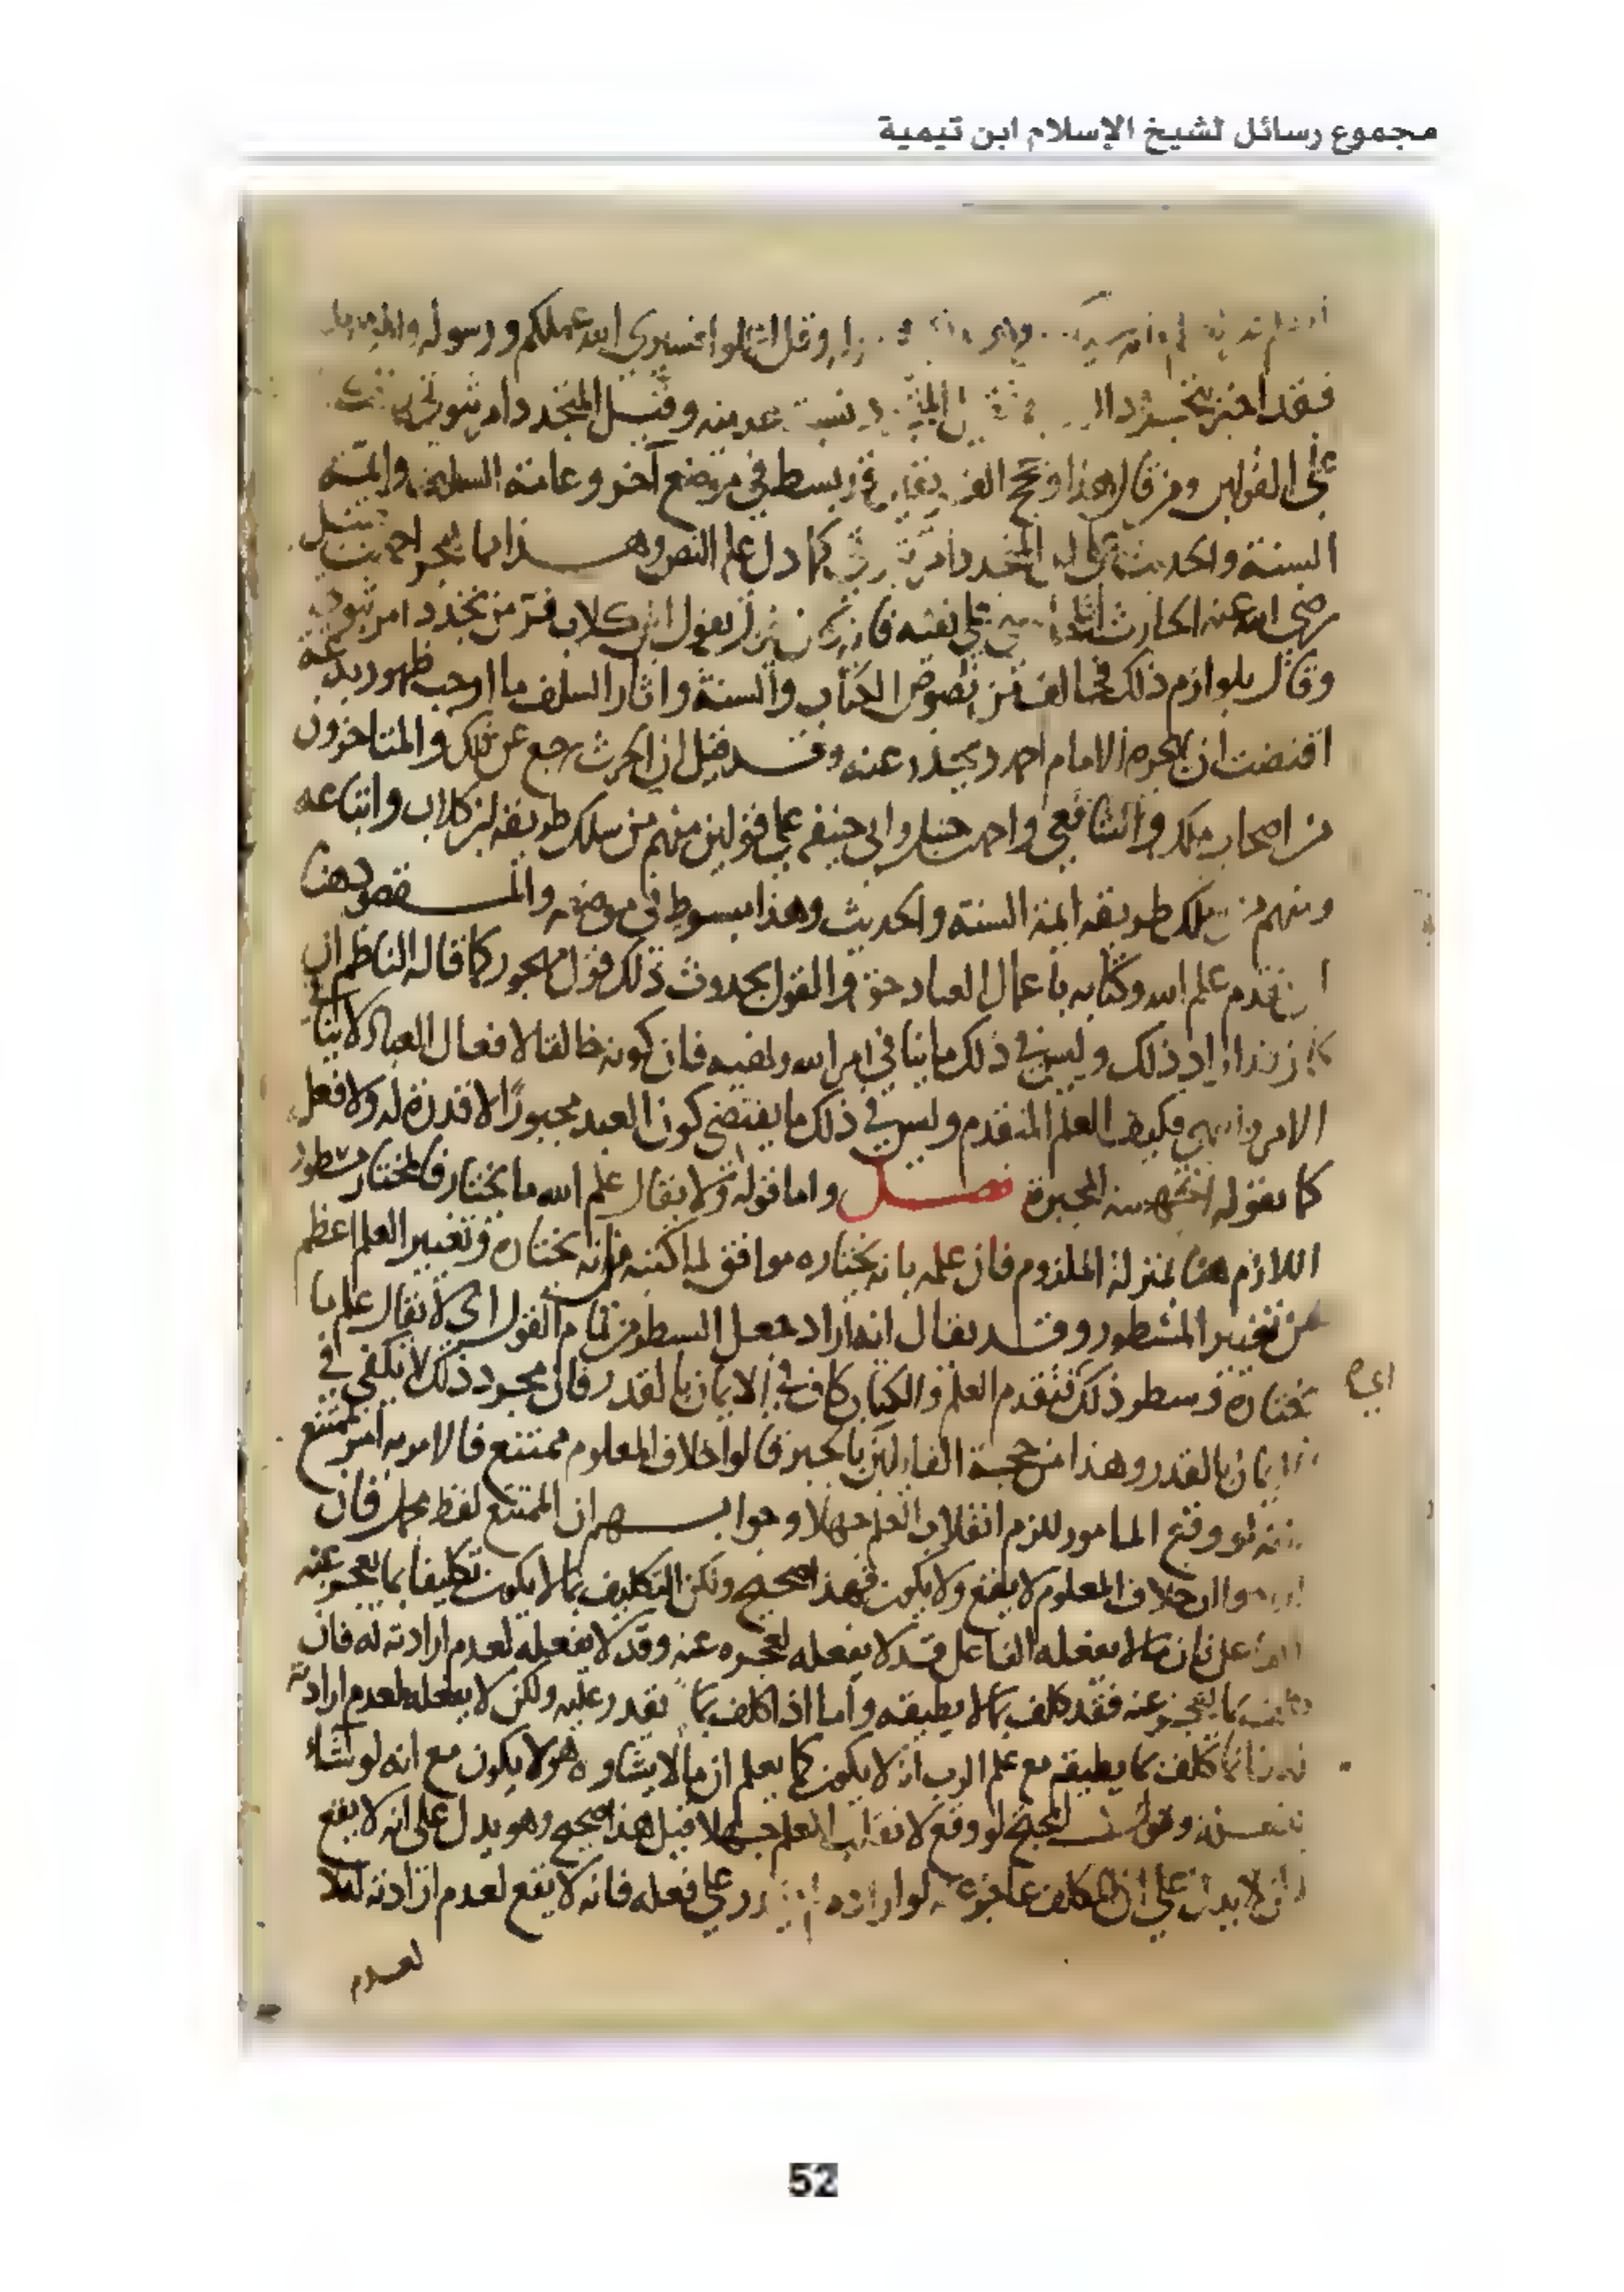 مجموع رسائل لشيخ الإسلام ابن تيمية
وقل اعملوا فسيرى الله عملكم ورسوله والمؤمنون
فقد اخبر بتجدد نسبة عدمية وقيل المتجدد امر ثبوتي
على القولين ومن قال هذا وحجج الفريقين قد بسط في موضع آخر وعامة السلف وائمة
السنة والحديث على ان المتجدد امر ثبوتي كما دل عليه النص وهذا مما هجر احمد بن حنبل
رضي الله عنه الحارث المحاسبي على نفيه فانه كان يقول بقول ابن كلاب فر من تجدد امر ثبوتي
وقال بلوازم ذلك فخالف من نصوص الكتاب والسنة واثار السلف ما اوجب ظهور بدعة
اقتضت ان يهجره الامام احمد ويحذر عنه وقد قيل ان الحرث رجع عن ذلك والمتاخرون
من اصحاب ملك والشافعي واحمد بن حنبل وابي حنيفة على قولين منهم من سلك طريقة ابن كلاب واتباعه
ومنهم من سلك طريقة ائمة السنة والحديث وهذا مبسوط في موضعه والمقصود هنا
ان تقدم علم الله وكتابه باعمال العباد حق والقول بحدوث ذلك قول مهجور كما قاله الناظم ان
كان اراد ذلك وليس في ذلك ما ينافي امر الله ونهيه فان كونه خالقا لافعال العباد لا ينافي
الامر والنهي فكيف العلم المتقدم وليس في ذلك ما يقتضي كون العبد مجبورًا لا قدرة له ولا فعل
كما يقوله الجهمية المجبرة فصل واما قوله ولا يقال علم الله ما يختار فالمختار مسطور
اللازم هنا بمنزلة الملزوم فان علمه بانه يختاره موافق لما كتبه من انه يختاره وتغيير العلم اعظم
من تغيير المسطور وقد يقال انه اراد جعل السطور من تمام القول اي لا يقال علم ما
يختاره وسطور ذلك فتقدم العلم والكتاب كاف في الايمان بالقدر فان مجرد ذلك لا يكفي في
الايمان بالقدر وهذا من حجة القائلين بالجبر قالوا خلاف المعلوم ممتنع فالامر به امر بممتنع
فانه لو وقع المامور للزم انقلاب العلم جهلا وجوابهم ان الممتنع لفظ مجمل فان
ارادوا ان خلاف المعلوم لا يقع ولا يكون فهذا صحيح ولكن التكليف بما لا يكون تكليفا بما يعجز عنه
الفاعل فان ما لا يفعله الفاعل قد لا يفعله لعجزه عنه وقد لا يفعله لعدم ارادته له فان
كلف بما يعجز عنه فقد كلف بما لا يطيقه واما اذا كلف بما يقدر عليه ولكن لا يفعله لعدم ارادته
فهذا انما كلف بما يطيقه مع علم الرب انه لا يكون كما يعلم ان ما لا يشاؤه هو لا يكون مع انه لو شاء
لفعله وقول المحتج لو وقع لانقلب العلم جهلا قيل هذا صحيح وهو يدل على انه لا يقع
لكن لا يدل على ان المكلف عاجز عنه لو اراده لم يقدر على فعله فانه لا يقع لعدم ارادته له لا
لعدم
52